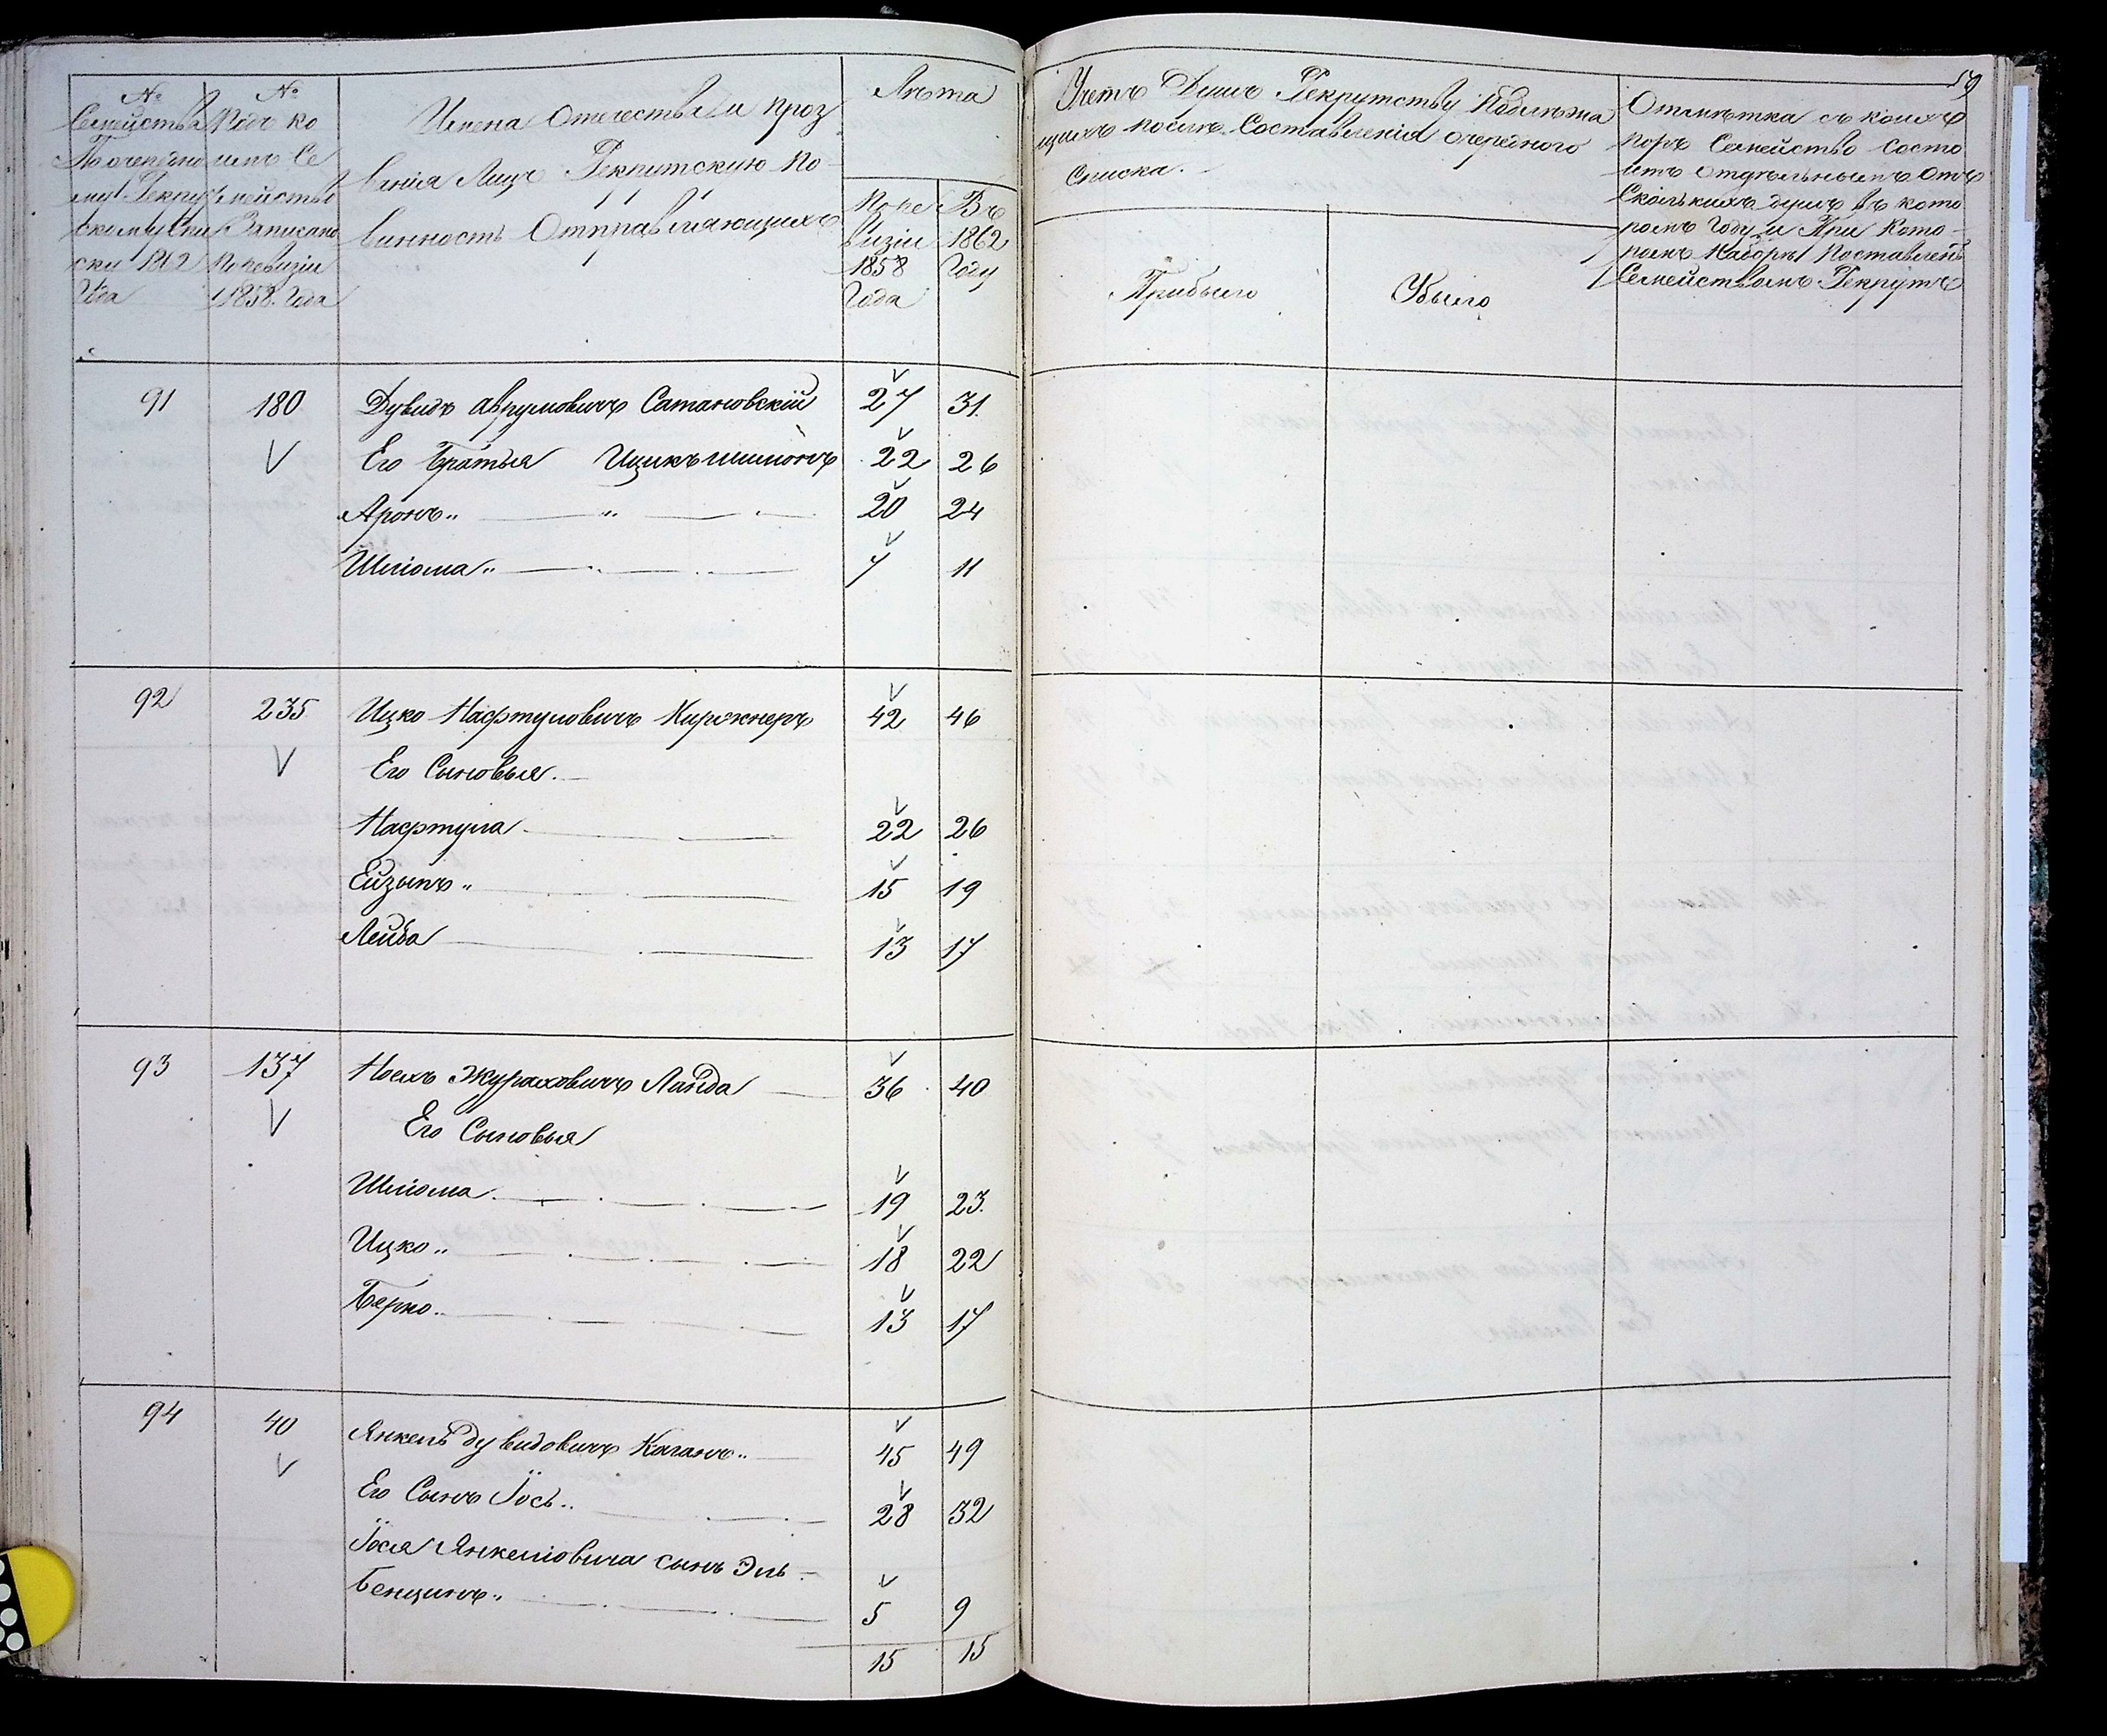 №
Семейства
По очередно
му Рекрут
скому Спи
ску 1862
Года
№
Подъ ко
имъ Се
мейство
Записано
По ревизіи
1858. Года
Имена Отечества и проз
ванія Лицъ Рекрутскую по-
винность Отправляющихъ
Лѣта
По ре
визіи
1858
Года
Въ
1862
Году
59
Учетъ Душъ Рекрутству Подлежа
щихъ послѣ Составленія очереднаго
Списка.
Прибыло
Убыло
Отмѣтка съ коихъ
поръ Семейство Состо
итъ отдѣльнымъ Отъ
Сколькихъ душъ въ кото
ромъ Году и При Кото-
ромъ Наборѣ Поставленъ
Семействомъ Рекрутъ
91 180 Дувидъ Аврумовичъ Сатановскій 27 31.
Его Братья Ицикъ шимонъ 22 26
Аронъ „ „ 20 24
Шліома „ 7 11
92 235 Ицко Нафтуловичъ Киржнеръ 42 46
Его Сыновья.
Нафтула 22 26
Ейзыкъ „ 15 19
Лейба 13 17
93 137 Ноехъ Жураховичъ Ланда 36 40
Его Сыновья
Шліома 19 23.
Ицко „ 18 22
Берко „ 13 17
94 40 Янкель Дувидовичъ Каганъ „ 45 49
Его Сынъ Іось „ 28 32
Іося Янкеліовича сынъ Эль-
Бенционъ „ 5 9
15 15